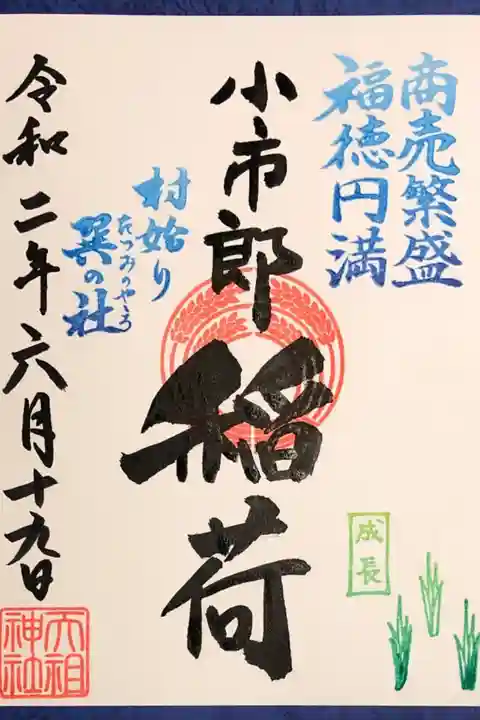 商売繁盛
福徳円満
小市郎稲荷
村始り
巽の社
たつみのやしろ
令和二年六月十九日
成長
天祖神社